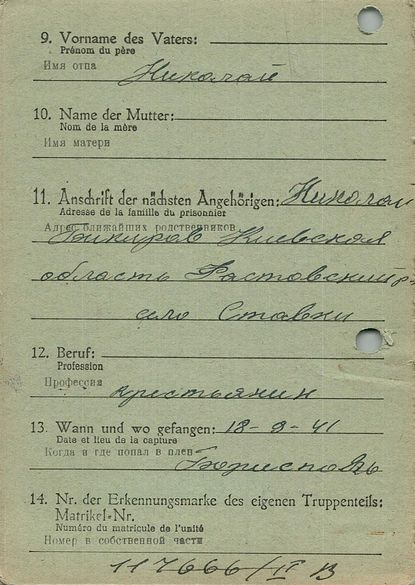 9. Vorname des Vaters:
Prénom du père
Имя отца
Николай
10. Name der Mutter:
Nom de la mère
Имя матери
11. Anschrift der nächsten Angehörigen: Николай
Adresse de la famille du prisonnier
Адрес ближайших родственников
Бикиров Киевская
область Фастовский р-
село Ставки
12. Beruf:
Profession
Профессия
крестьянин
13. Wann und wo gefangen: 18-9-41
Date et lieu de la capture
Когда и где попал в плен
Борисполь
14. Nr. der Erkennungsmarke des eigenen Truppenteils:
Matrikel-Nr.
Numéro du matricule de l'unité
Номер в собственной части
117666/II B